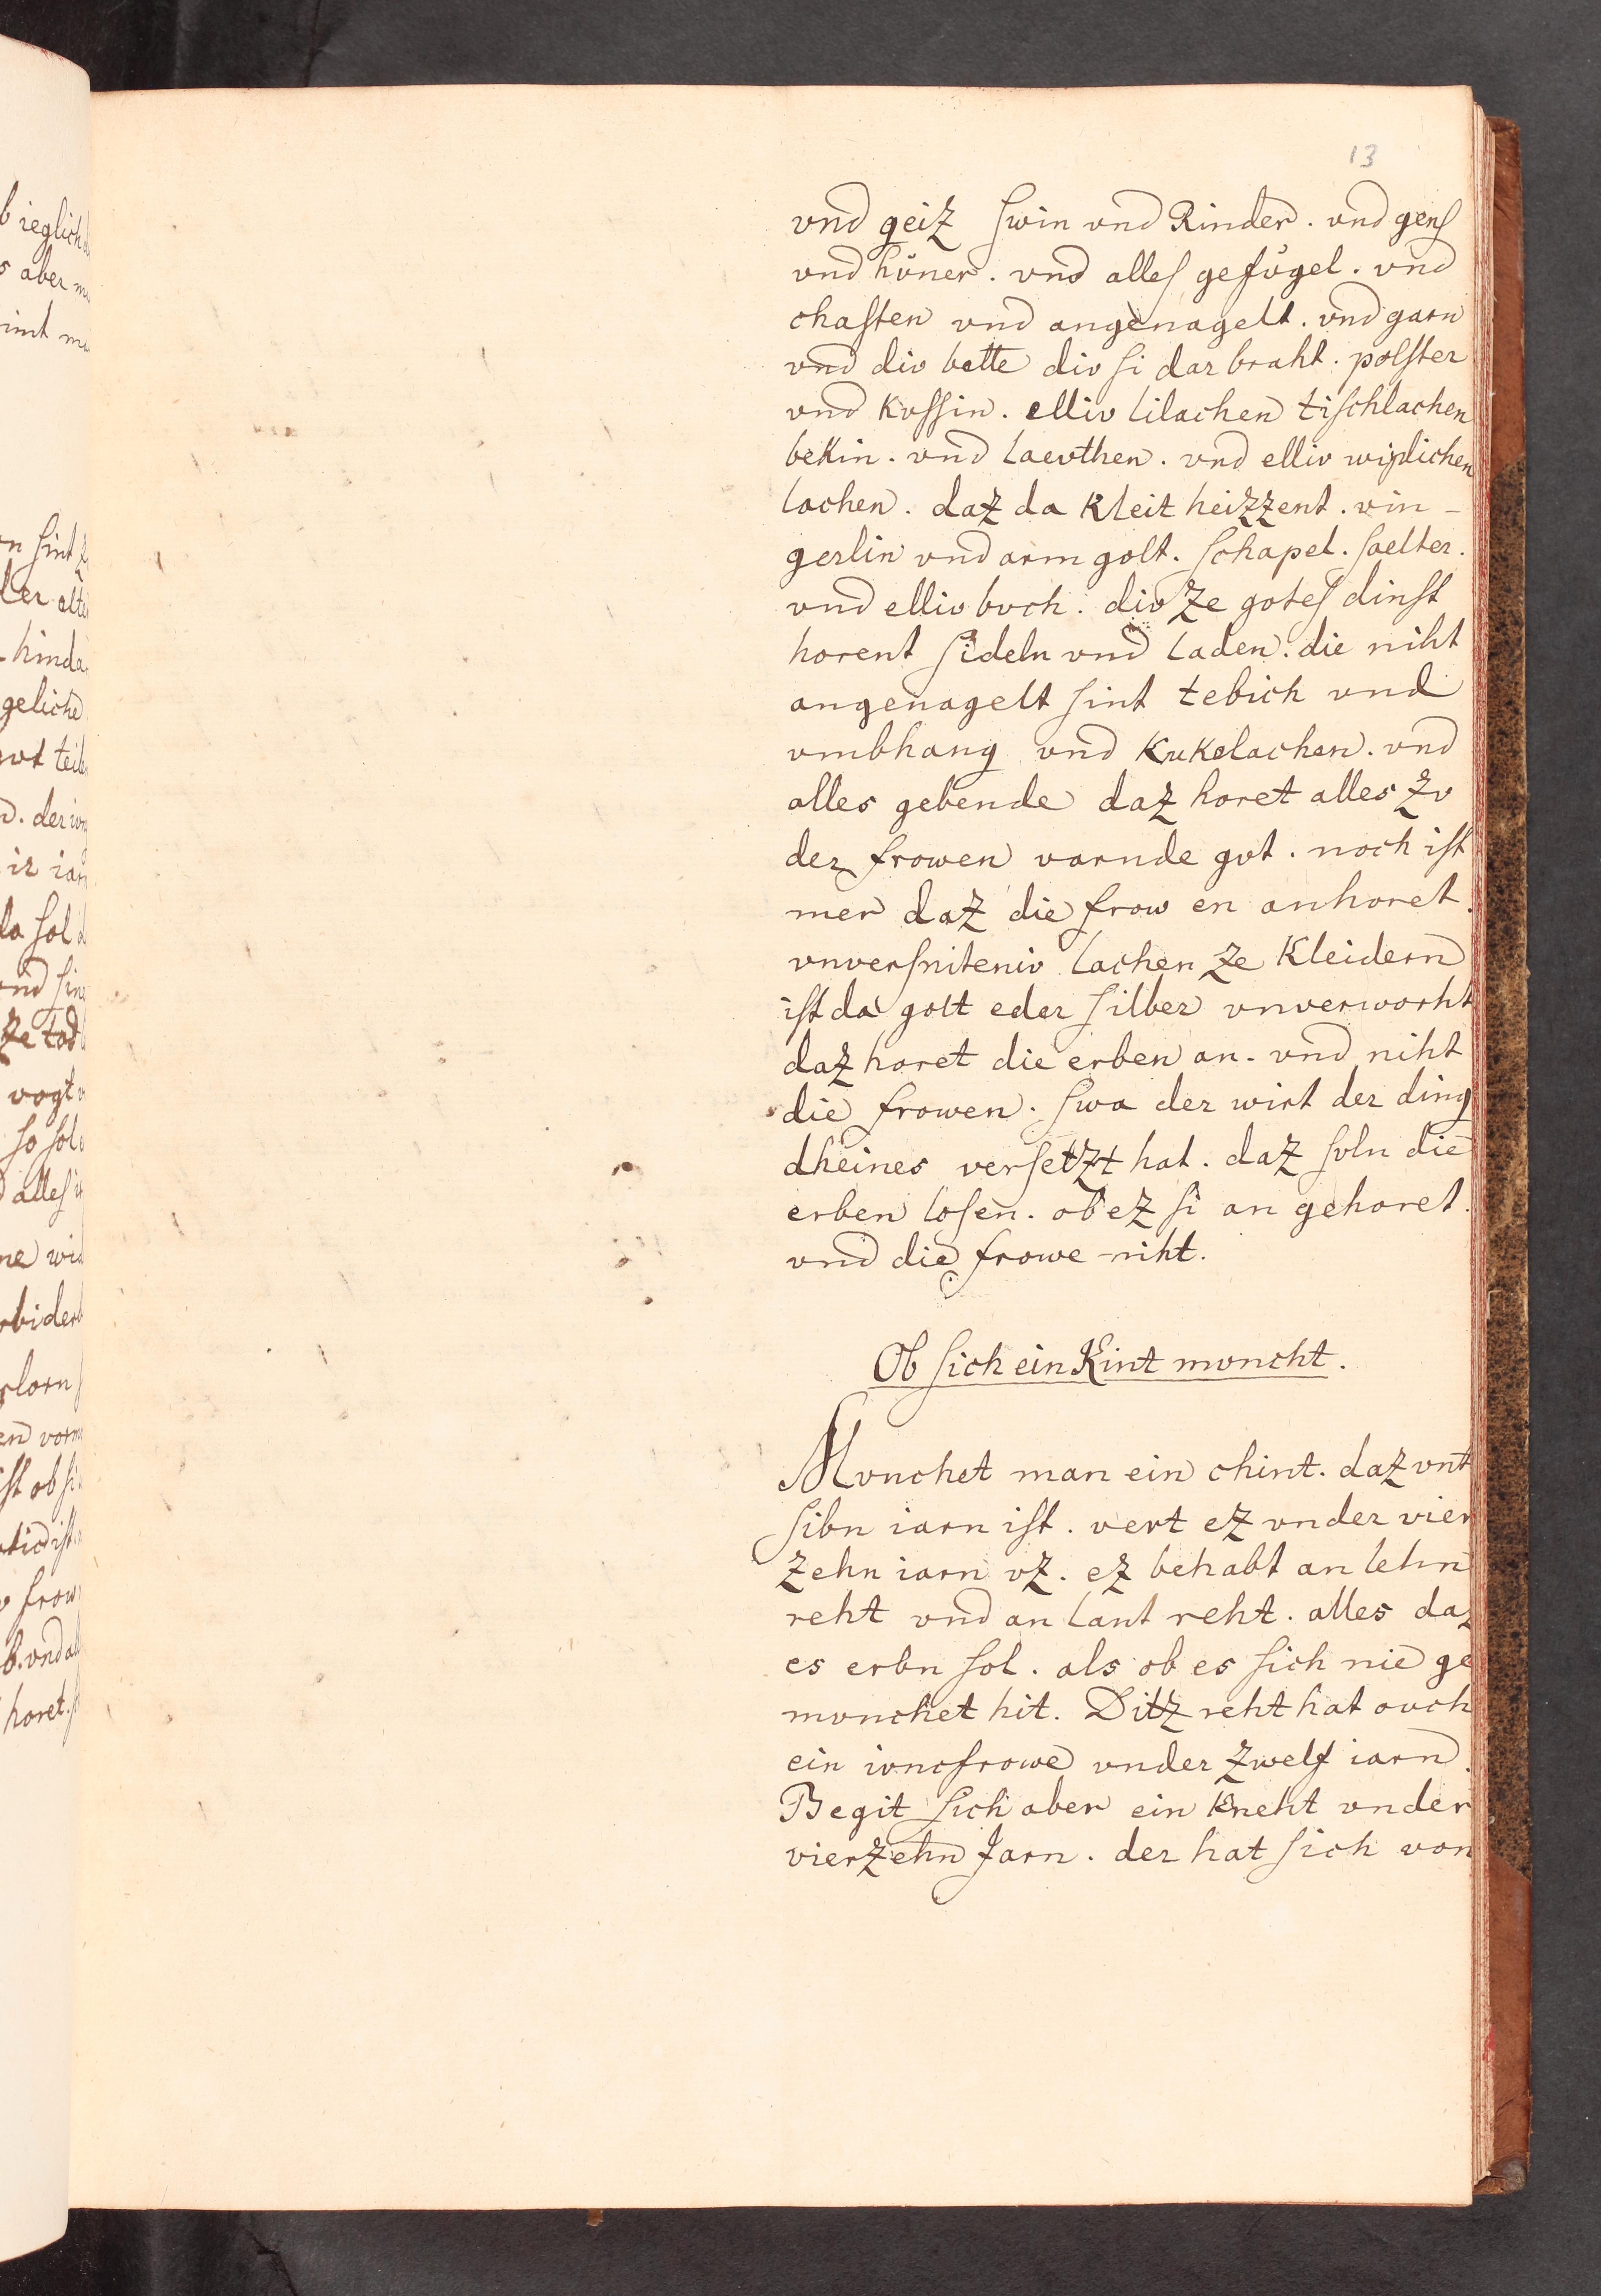 13
vnd geiz ſwin vnd Rinder. vnd genſ
vnd hůner. vnd alleſ gefůgel. vnd
chaſten vnd angenagelt. vnd garn
vnd div bette div ſi dar braht. polſter
vnd kvſſin. elliv lilachen tiſchlachen
bekin. vnd laevthen. vnd elliv wiplichen
lachen. daz da kleit heizzent. vin-
gerlin vnd arm golt. ſchapel. ſaelter.
vnd elliv bvch. div ze goteſ dinſt
horent ſideln vnd laden. die niht
angenagelt ſint tebich vnd
vmbhang vnd kukelachen. vnd
alles gebende daz horet alles zv
der frowen varnde gvt. noch iſt
mer daz die frow en anhoret.
vnverſniteniv lachen ze kleidern
iſt da golt eder ſilber vnverworht
daz horet die erben an. vnd niht
die frowen. ſwa der wirt der ding
dheines verſetzt hat. daz ſvln die
erben loſen. ob ez ſi an gehoret.
vnd die frowe niht.
Ob ſich ein Kint mvncht.
Mvnchet man ein chint. daz vnt
ſibn iarn iſt. vert ez vnder vier
zehn iarn vz. ez behabt an lehn
reht vnd an lant reht. alles daz
es erbn ſol. als ob es ſich nie ge
mvnchet hit. Ditz reht hat ovch
ein ivncfrowe vnder zwelf iarn.
Begit ſich aber ein kneht vnder
vierzehn Jarn. der hat ſich von